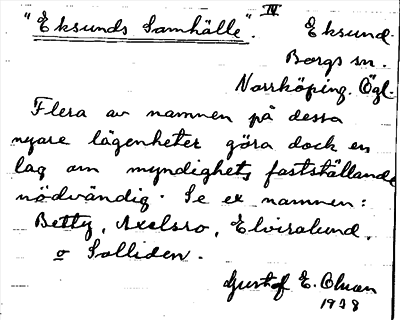 "Eksunds Samhälle". IV Eksund.
Borgs sn.
Norrköping. Ögl.
Flera av namnen på dessa
nyare lägenheter göra dock en
lag om myndighets fastställande
nödvändig. Se ex namnen:
Betty, Axelsro, Elviralund,
o Solliden.
Gustof E. Ohman
1938